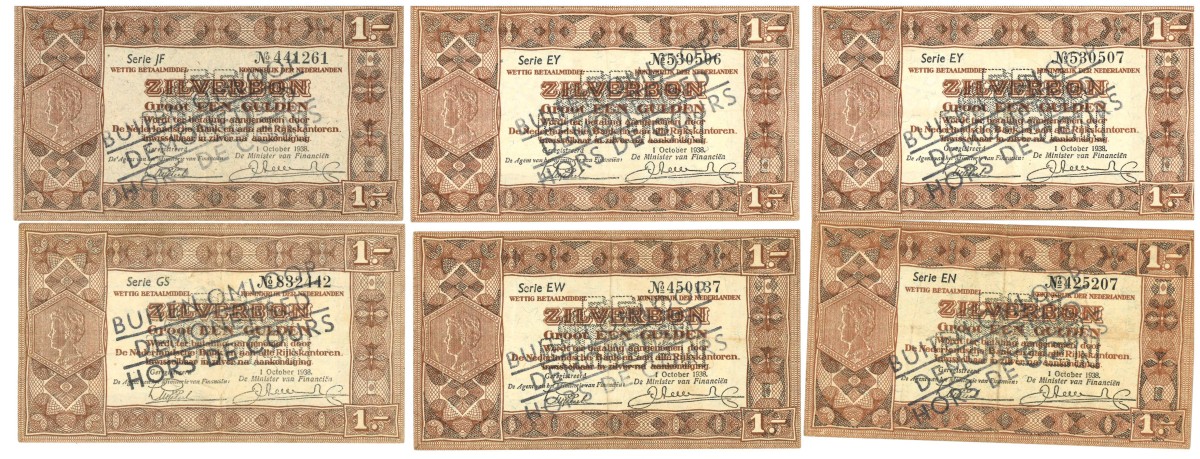 1.-
Serie JF № 441261
WETTIG BETAALMIDDEL KONINKRIJK DER NEDERLANDEN
ZILVERBON
Groot EEN GULDEN
Wordt ter betaling aangenomen door
De Nederlandsche Bank en aan alle Rijkskantoren.
Inwisselbaar in zilver na aankondiging.
Geregistreerd 1 October 1938.
De Agent van het Ministerie van Financiën: De Minister van Financiën
BUITEN OMLOOP
HORS DE COURS
1.-
1.-
Serie EY № 530506
WETTIG BETAALMIDDEL KONINKRIJK DER NEDERLANDEN
ZILVERBON
Groot EEN GULDEN
Wordt ter betaling aangenomen door
De Nederlandsche Bank en aan alle Rijkskantoren.
Inwisselbaar in zilver na aankondiging.
Geregistreerd 1 October 1938.
De Agent van het Ministerie van Financiën: De Minister van Financiën
BUITEN OMLOOP
HORS DE COURS
1.-
1.-
Serie EY № 530507
WETTIG BETAALMIDDEL KONINKRIJK DER NEDERLANDEN
ZILVERBON
Groot EEN GULDEN
Wordt ter betaling aangenomen door
De Nederlandsche Bank en aan alle Rijkskantoren.
Inwisselbaar in zilver na aankondiging.
Geregistreerd 1 October 1938.
De Agent van het Ministerie van Financiën: De Minister van Financiën
BUITEN OMLOOP
HORS DE COURS
1.-
1.-
Serie GS № 832142
WETTIG BETAALMIDDEL KONINKRIJK DER NEDERLANDEN
ZILVERBON
Groot EEN GULDEN
Wordt ter betaling aangenomen door
De Nederlandsche Bank en aan alle Rijkskantoren.
Inwisselbaar in zilver na aankondiging.
Geregistreerd 1 October 1938.
De Agent van het Ministerie van Financiën: De Minister van Financiën
BUITEN OMLOOP
HORS DE COURS
1.-
1.-
Serie EW № 450137
WETTIG BETAALMIDDEL KONINKRIJK DER NEDERLANDEN
ZILVERBON
Groot EEN GULDEN
Wordt ter betaling aangenomen door
De Nederlandsche Bank en aan alle Rijkskantoren.
Inwisselbaar in zilver na aankondiging.
Geregistreerd 1 October 1938.
De Agent van het Ministerie van Financiën: De Minister van Financiën
BUITEN OMLOOP
HORS DE COURS
1.-
1.-
Serie EN № 125207
WETTIG BETAALMIDDEL KONINKRIJK DER NEDERLANDEN
ZILVERBON
Groot EEN GULDEN
Wordt ter betaling aangenomen door
De Nederlandsche Bank en aan alle Rijkskantoren.
Inwisselbaar in zilver na aankondiging.
Geregistreerd 1 October 1938.
De Agent van het Ministerie van Financiën: De Minister van Financiën
BUITEN OMLOOP
HORS DE COURS
1.-